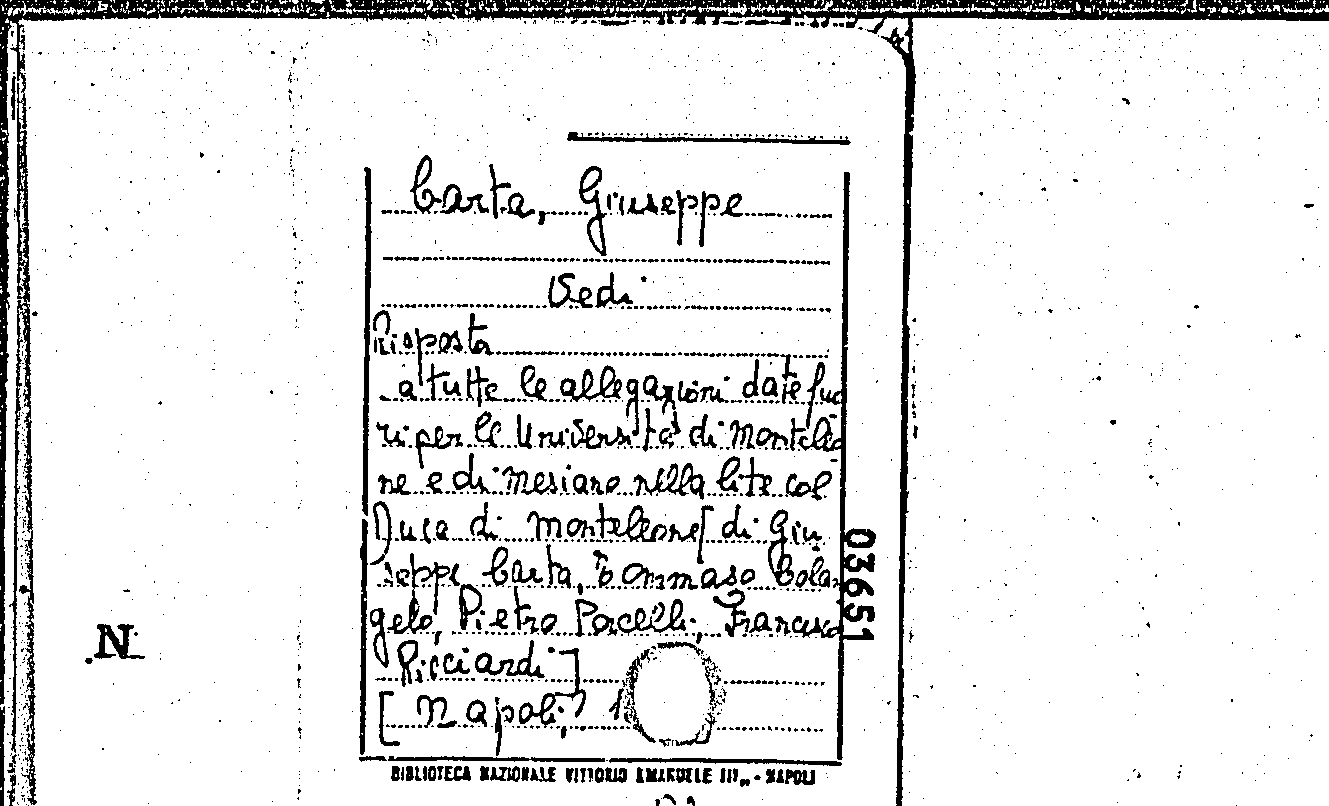 Carta, Giuseppe
Vedi
Risposta
a tutte le allegazioni date fuo
ri per le Università di Monteleo
ne e di Mesiano nella lite col
Duca di Monteleone [di Giu
seppe Carta, Tommaso Cola
gelo, Pietro Porcelli, Francesco
Ricciardi]
[Napoli,
BIBLIOTECA NAZIONALE VITTORIO EMANUELE III„ - NAPOLI
03651
N